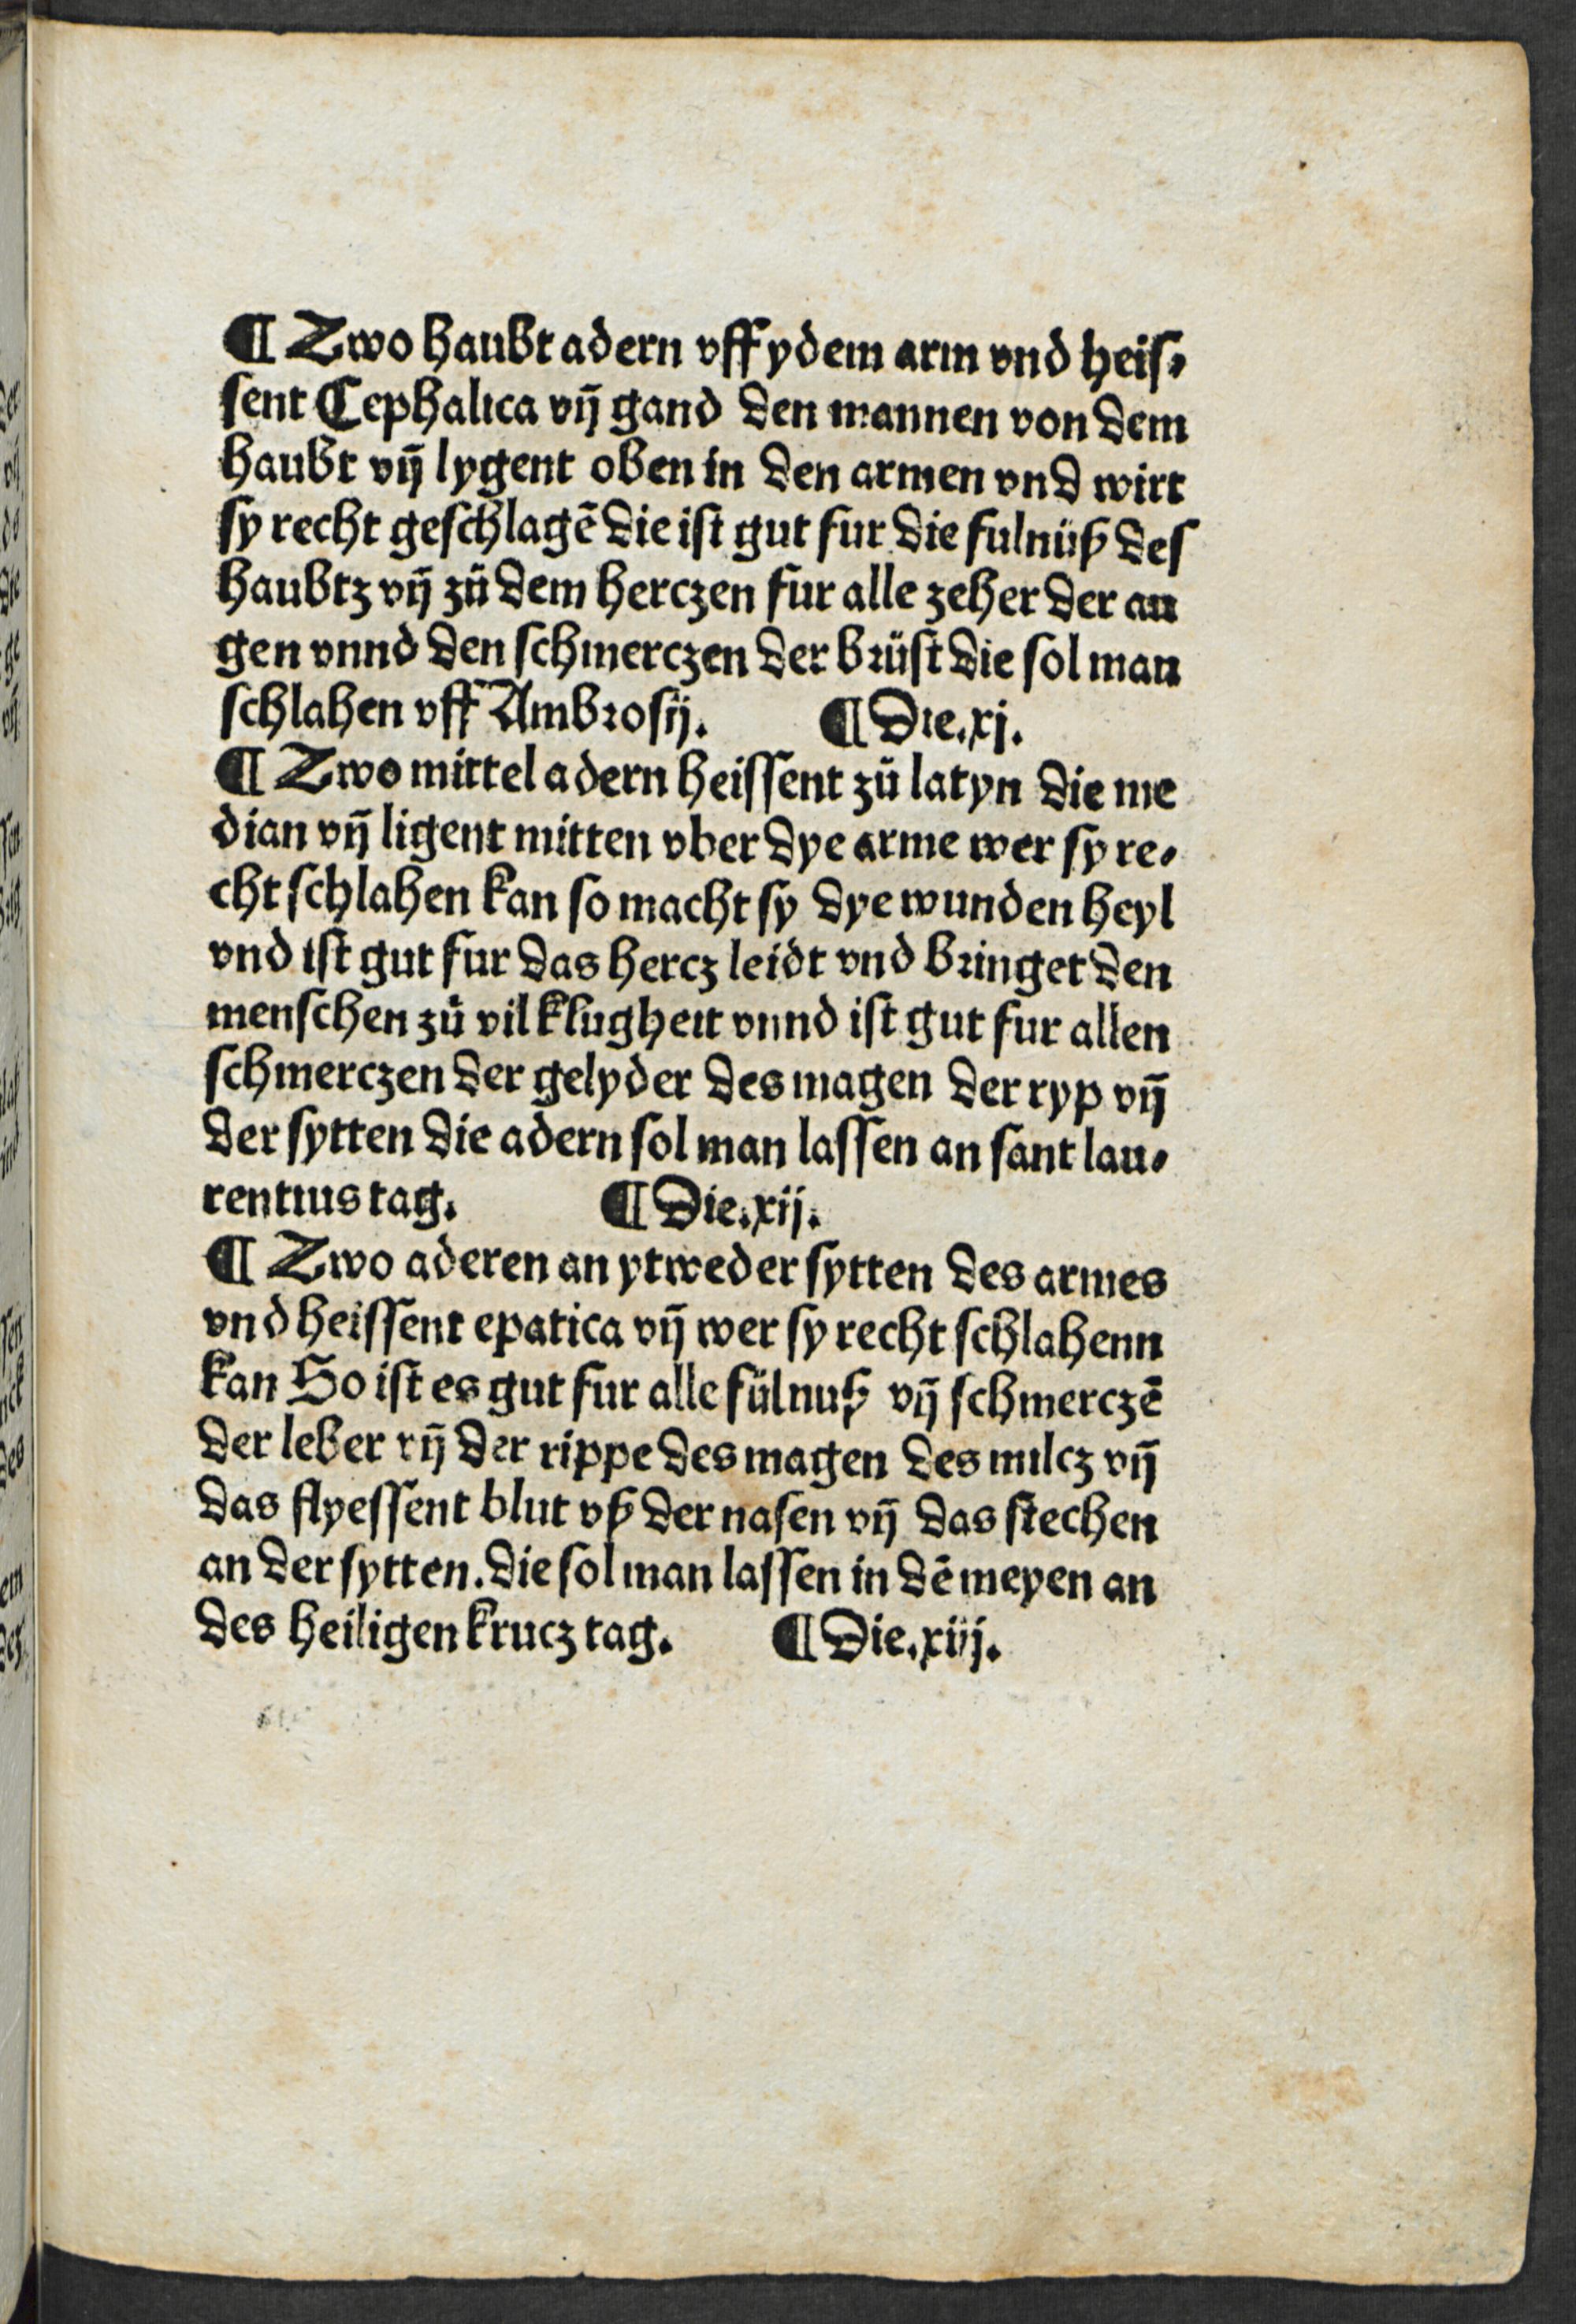 ¶ Zwo haubt adern vff ydem arm vnd heis⸗
sent Cephalica vñ gand den mannen von dem
haubt vñ lygent oben in den armen vnd wirt
sy recht geschlagē die ist gut fur die fulnüß des
haubtz vñ zů dem herczen fur alle zeher der au
gen vnnd den schmerczen der brüst die sol man
schlahen vff Ambrosij. ¶ Die .xj.
¶ Zwo mittel adern heissent zů latyn die me
dian vñ ligent mitten vber dye arme wer sy re⸗
cht schlahen kan so macht sy dye wunden heyl
vnd ist gut fur das hercz leidt vnd bringet den
menschen zů vil klugheit vnnd ist gut fur allen
schmerczen der gelyder des magen der ryp vñ
der sytten die adern sol man lassen an sant lau⸗
rentius tag. ¶ Die .xij.
¶ Zwo aderen an ytweder sytten des armes
vnd heissent epatica vñ wer sy recht schlahenn
kan So ist es gut fur alle fülnuß vñ schmerczē
der leber vñ der rippe des magen des milcz vñ
das flyessent blut vß der nasen vñ das stechen
an der sytten. die sol man lassen in dē meyen an
des heiligen krucz tag. ¶ Die .xiij.